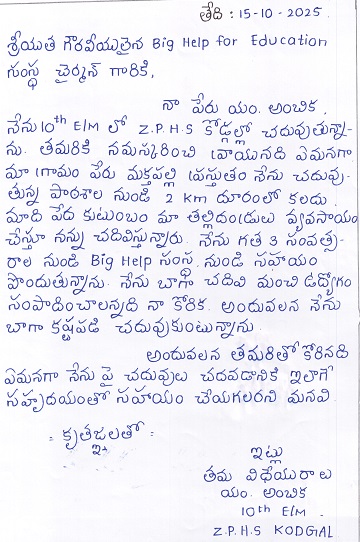 తేది : 15-10-2025.
శ్రీయుత గౌరవీయులైన Big Help for Education
సంస్థ చైర్మన్ గారికి,
నా పేరు యం. అంబిక,
నేను 10th E/M లో Z.P.H.S కోడ్గల్లో చదువుతున్నా-
ను. తమరికి నమస్కరించి వ్రాయునది ఏమనగా
మా గ్రామం పేరు మక్తపల్లి ప్రస్తుతం నేను చదువు-
తున్న పాఠశాల నుండి 2 Km దూరంలో కలదు.
మాది పేద కుటుంబం మా తల్లిదండ్రులు వ్యవసాయం
చేస్తూ నన్ను చదివిస్తున్నారు. నేను గత 3 సంవత్స-
రాల నుండి Big Help సంస్థ నుండి సహాయం
పొందుతున్నాను. నేను బాగా చదివి మంచి ఉద్యోగం
సంపాదించాలన్నది నా కోరిక. అందువలన నేను
బాగా కష్టపడి చదువుకుంటున్నాను.
అందువలన తమరితో కోరినది
ఏమనగా నేను పై చదువులు చదవడానికి ఇలాగే
సహృదయంతో సహాయం చేయగలరని మనవి.
: కృతజ్ఞలతో :
ఇట్లు
తమ విధేయురాలు
యం. అంబిక
10th E/M
Z.P.H.S KODGAL